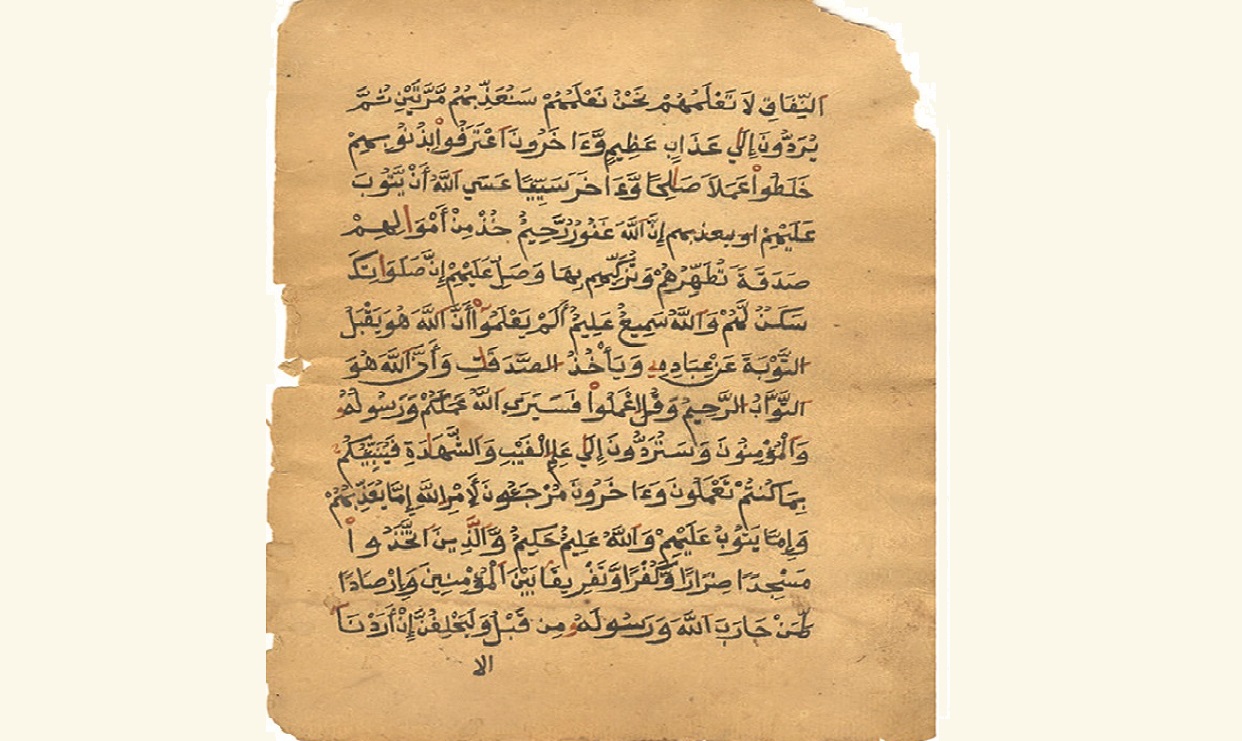 اَلنِّفَاقِ لَا تَعْلَمُهُمْ نَحْنُ نَعْلَمُهُمْ سَنُعَذِّبُهُم مَّرَّتَيْنِ ثُمَّ
يُرَدُّونَ إِلَىٰ عَذَابٍ عَظِيمٍ وَءَاخَرُونَ اَعْتَرَفُواْ بِذُنُوبِهِمْ
خَلَطُواْ عَمَلاً صَٰلِحًا وَءَاخَرَ سَيِّئًا عَسَى اَللَّهُ أَنْ يَّتُوبَ
عَلَيْهِمْ او يعذبهم إِنَّ اَللَّهَ غَفُورٌ رَّحِيمٌ خُذْ مِنْ أَمْوَٰلِهِمْ
صَدَقَةً تُطَهِّرُهُمْ وَتُزَكِّيهِم بِهَا وَصَلِّ عَلَيْهِمْ إِنَّ صَلَوَٰتِكَ
سَكَنٌ لَّهُمْ وَاَللَّهُ سَمِيعٌ عَلِيمٌ أَلَمْ يَعْلَمُوٓاْ أَنَّ اَللَّهَ هُوَ يَقْبَلُ
اَلتَّوْبَةَ عَنْ عِبَادِهِۦ وَيَأْخُذُ اَلصَّدَقَٰتِ وَأَنَّ اَللَّهَ هُوَ
اَلتَّوَّابُ اَلرَّحِيمُ وَقُلِ اِعْمَلُواْ فَسَيَرَى اَللَّهُ عَمَلَكُمْ وَرَسُولُهُۥ
وَاَلْمُؤْمِنُونَ وَسَتُرَدُّونَ إِلَىٰ عَٰلِمِ اِلْغَيْبِ وَاَلشَّهَٰدَةِ فَيُنَبِّئُكُم
بِمَا كُنتُمْ تَعْمَلُونَ وَءَاخَرُونَ مُرْجَوْنَ لِأَمْرِ اِللَّهِ إِمَّا يُعَذِّبُهُمْ
وَإِمَّا يَتُوبُ عَلَيْهِمْ وَاَللَّهُ عَلِيمٌ حَكِيمٌ وَاَلَّذِينَ اَتَّخَذُواْ
مَسْجِدًا ضِرَارًا وَكُفْرًا وَتَفْرِيقًا بَيْنَ اَلْمُؤْمِنِينَ وَإِرْصَادًا
لِّمَنْ حَارَبَ اَللَّهَ وَرَسُولَهُۥ مِن قَبْلُ وَلَيَحْلِفُنَّ إِنْ أَرَدْنَآ
الا